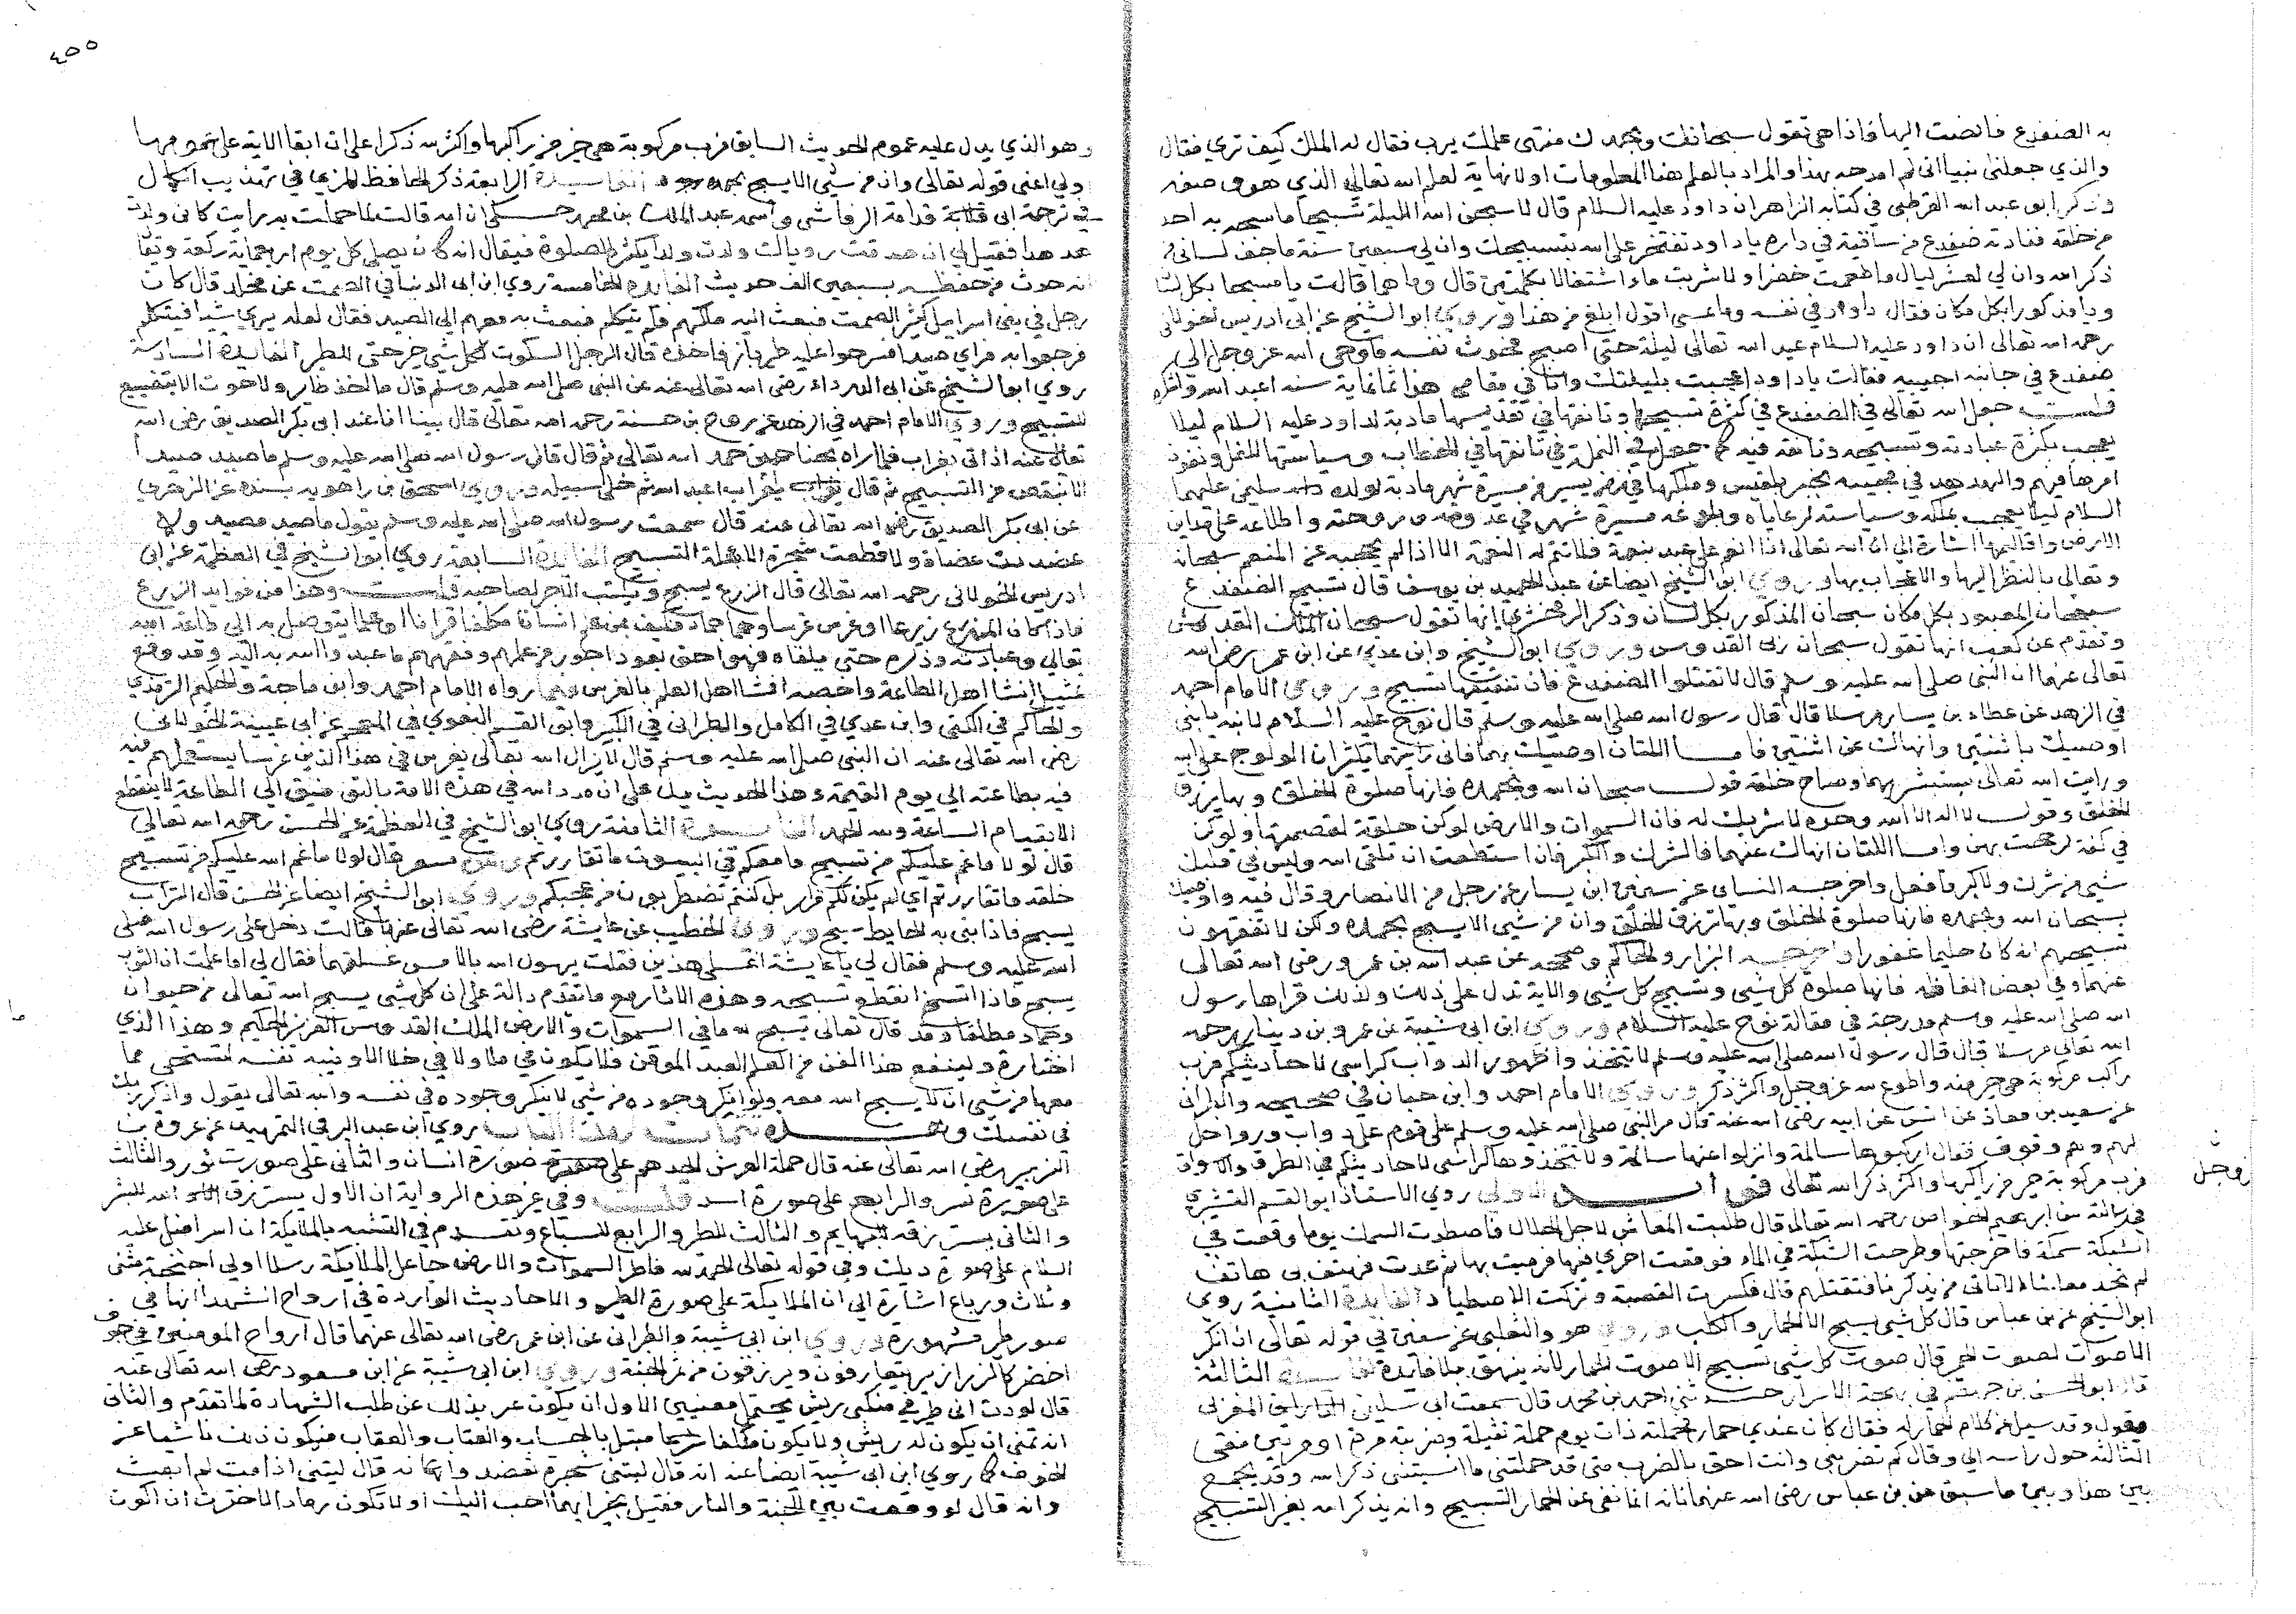 به الضفدع فانصت اليها فاذا هي تقول سبحانك وبحمدك منتهى علمك يرب فقال له الملك كيف ترى فقال
والذي جعلني نبيا اني لم امدحه بهذا والمراد بالعلم هنا المعلومات اولا نهاية لعلم الله تعالى الذي هو صفه
وذكر ابو عبد الله القرطبي في كتابه الزاهر ان داود عليه السلام قال لاسبحن الله الليلة تسبيحا ماسبحه به احد
من خلقه فنادته ضفدع من ساقية في داره ياداود تفتخر على الله بتسبيحك وان لي سبعين سنة ماجف لساني من
ذكر الله وان لي لعشر ليال ماطعمت خضرا ولا شربت ماء اشتغالا بكلمتين قال وما هما قالت يا مسبحا بكل لسان
ويا مذكورا بكل مكان فقال داود في نفسه وما عسى اقول ابلغ من هذا وروى ابو الشيخ عن ابي ادريس الخولاني
رحمه الله تعالى ان داود عليه السلام عبد الله تعالى ليلة حتى اصبح فحدث نفسه فاوحى الله عز وجل الى
ضفدع في جانبه اجيبيه فقالت ياداود اعجبت بليلتك وانا في مقامي هذا ثمانماية سنه اعبد الله واشكره
قلت جعل الله تعالى في الضفدع في كثرة تسبيحها وتانقها في تقديسها مادبة لداود عليه السلام ليلا
يعجب بكثرة عبادته وتسبيحه وتانقه فيه كما جعل في النملة في تانقها في الخطاب وسياستها للنمل ونفوذ
امرها فيهم والهدهد في مجيئه بخبر بلقيس وملكها في زمن يسير من مسيرة شهر مادبة لولده سليمن عليهما
السلام ليلا يعجب بملكه وسياسته لرعاياه مسيرة شهر في غدوه وروحته واطلاعه على مداين
الارض واقاليمها اشارة الى ان الله تعالى اذا انعم على عبد بنعمة فلا تتم له النعمة الا اذا لم تحجبه عن المنعم سبحانه
وتعالى بالنظر اليها والاعجاب بها وروى ابو الشيخ ايضا عن عبد الحميد بن يوسف قال تسبيح الضفدع
سبحان المعبود بكل مكان سبحان المذكور بكل لسان وذكر الزمخشري انها تقول سبحان الملك القدوس
وتقدم عن كعب انها تقول سبحان ربي القدوس وروى ابو الشيخ وابن عدي عن ابن عمر رضي الله
تعالى عنهما ان النبي صلى الله عليه وسلم قال لا تقتلوا الضفدع فان نقيقها تسبيح وروى الامام احمد
في الزهد عن عطاء بن يسار مرسلا قال قال رسول الله صلى الله عليه وسلم قال نوح عليه السلام لابنه يابني
اوصيك باثنتين وانهاك عن اثنتين فاما اللتان اوصيك بهما فاني رايتهما يكثران الولوج على الله
ورايت الله تعالى يستبشر بهما وصالح خلقه قول سبحان الله وبحمده فانها صلوة الخلق وبها يرزق
الخلق وقول لا اله الا الله وحده لا شريك له فان السموات والارض لو كن حلقة لقصمتها ولو كن
في كفة لرجحت بهن واما اللتان انهاك عنهما فالشرك والكبر فان استطعت ان تلقى الله وليس في قلبك
شي من شرك ولا كبر فافعل واخرجه النساي عن سليمن ابن يسار عن رجل من الانصار وقال فيه واوصيك
بسبحان الله وبحمده فانها صلوة الخلق وبها ترزق الخلق وان من شي الا يسبح بحمده ولكن لا تفقهون
تسبيحهم انه كان حليما غفورا واخرجه البزار والحاكم وصححه عن عبد الله بن عمرو رضي الله تعالى
عنهما وفي بعض الفاظه فانها صلوة كل شي وتسبيح كل شي والاية تدل على ذلك ولذلك قراها رسول
الله صلى الله عليه وسلم مدرجة في مقالة نوح عليه السلام وروى ابن ابي شيبة عن عمرو بن دينار رحمه
الله تعالى مرسلا قال قال رسول الله صلى الله عليه وسلم لا تتخذوا ظهور الدواب كراسي لاحاديثكم فرب
راكب مركوبة هي خير منه واطوع لله عز وجل واكثر ذكر وروى الامام احمد وابن حبان في صحيحه والطبراني
عن سعيد بن معاذ عن انس عن ابيه رضي الله عنه قال مر النبي صلى الله عليه وسلم على قوم على دواب ورواحل
لهم وهم وقوف فقال اركبوها سالمة وانزلوا عنها سالمة ولا تتخذوها كراسي لاحاديثكم في الطرق والاسواق
فرب مركوبة خير من راكبها واكثر ذكرا لله تعالى فوايد الاولى روي الاستاذ ابو القسم القشيري
في رسالته عن ابرهيم الخواص رحمه الله تعالى قال طلبت المعاش لاجل الحلال فاصطدت السمك يوما وقعت في
الشبكة سمكة فاخرجتها وطرحت الشبكة في الماء فوقعت اخرى فيها فرميت بها ثم عدت فهتف بي هاتف
لم تجد معاشا الا ان تاتي من يذكرنا فتقتلهم قال فكسرت القصبة وتركت الاصطياد الفايدة الثانية روي
ابو الشيخ عن بن عباس قال كل شي يسبح الا الحمار والكلب وروى هو والثعلبي عن سفين في قوله تعالى ان انكر
الاصوات لصوت الحمير قال صوت كل شي تسبيح الا صوت الحمار لانه ينهق بلا فايدة الفايدة الثالثة
قال ابو الحسن بن جهضم في بهجة الاسرار حدثني احمد بن محمد قال سمعت ابي سليمن المغربي
يقول وقد سيل عن كلام الحمار له فقال كان عندي حمار فحملته ذات يوم حملة ثقيلة وضربته مرة او مرتين ففي
الثالثة حول راسه الي وقال كم تضربني وانت احق بالضرب متى قد حملتني ما انسيتني ذكر الله وقد يجمع
بين هذا وبين ماسبق عن بن عباس رضي الله عنهما بانه انما نفى عن الحمار التسبيح وانه يذكر الله بغير التسبيح
وجل
٤٥٥
وهو الذي يدل عليه عموم الحديث السابق فرب مركوبة هي خير من راكبها واكثر لله ذكرا على ان ابقا الاية على عمومها
اولى اعني قوله تعالى وان من شي الا يسبح بحمده الفايدة الرابعة ذكر الحافظ المزي في تهذيب الكمال
في ترجمة ابي قلابة الرقاشي واسمه عبد الملك بن محمد حكي ان امه قالت لما حملت به رايت كاني ولدت
هدهدا فقيل لي ان صدقت روياك ولدت ولدا يكثر الصلوة فيقال انه كان يصلي كل يوم اربعماية ركعة ويقال
انه حدث من حفظه بسبعين الف حديث الفايدة الخامسة روي ابن ابي الدنيا في الصمت عن مخلد قال كان
رجل في بني اسرايل كثير الصمت فبعث اليه ملكهم فلم يتكلم فبعث به معهم الى الصيد فقال لعله يرى شيا فيتكلم
فرجعوا به فراى صيدا فسرحوا عليه طير باز فاخذه قال الرجل السكوت لكل شي خير حتى للطير الفايدة السادسة
روي ابو الشيخ عن ابي الدرداء رضي الله تعالى عنه عن النبي صلى الله عليه وسلم قال ما اخذ طاير ولا حوت الا بتضييع
التسبيح وروى الامام احمد في الزهد عن بن حسنة رحمه الله تعالى قال بينا انا عند ابي بكر الصديق رضي الله
تعالى عنه اذ اتي بغراب فلما راه بجناحين حمد الله تعالى ثم قال قال رسول الله صلى الله عليه وسلم ما صيد صيد
الا بنقص من التسبيح ثم قال ياغراب اعبد الله ثم خلى سبيله وروى اسحق بن راهويه بسنده عن الزهري
عن ابي بكر الصديق رضي الله تعالى عنه قال سمعت رسول الله صلى الله عليه وسلم يقول ما صيد مصيد ولا
عضدت عضاة ولا قطعت شجرة الا بقلة التسبيح الفايدة السابعة روي ابو الشيخ في العظمة عن ابي
ادريس الخولاني رحمه الله تعالى قال الزرع يسبح ويكتب الاجر لصاحبه قلت وهذا من فوايد الزرع
تعالى وعبادته وذكره حتى يلقاه فهو احق بعود اجور من علمهم وفهمهم ما عبدوا الله به اليه وقد وقع
اهل الطاعة واخصه افشا اهل العلم بالغرس فيما رواه الامام احمد وابن ماجة والحكيم الترمذي
والحاكم في الكنى وابن عدي في الكامل والطبراني في الكبير وابو القسم البغوي في المعجم عن ابي عيينة الخولاني
رضي الله تعالى عنه ان النبي صلى الله عليه وسلم قال لايزال الله تعالى يغرس في هذا الدين غرسا يستعملهم فيه
فيه بطاعته الى يوم القيمة وهذا الحديث يدل على ان مدد الله في هذه الامة بالتوفيق الى الطاعة لا ينقطع
الا بقيام الساعة ولله الحمد الفايدة الثامنة روى ابو الشيخ في العظمة عن الحسن رحمه الله تعالى
قال لولا ما غم عليكم من تسبيح مامعكم في البيوت ما تقاررتم قال لولا ما غم الله عليكم من تسبيح
خلقه ماتقاررتم اي لم يكن لكم قرار بل كنتم تضطربون وروى ابو الشيخ ايضا عن الحسن قال التراب
يسبح فاذا بني به الحايط سبح وروى الخطيب عن عايشة رضي الله تعالى عنها قالت دخل علي رسول الله صلى
الله عليه وسلم فقال لي ياعايشة اغسلي هذين فقلت يرسول الله بالامس غسلتهما فقال لي اما علمت ان الثوب
يسبح فاذا اتسخ انقطع تسبيحه وهذه الاثار مع ماتقدم دالة على ان كل شي يسبح الله تعالى من حيوان
وجماد مطلقا وقد قال تعالى يسبح لله ما في السموات والارض الملك القدوس العزيز الحكيم وهذا الذي
اختاره ولينفع هذا الفن من العلم العبد الموقن فلا يكون في ملا ولا في خلا الا وينبه نفسه لتستحي مما
معها من شي ان لا يسبح الله معه ولا ينكر وجوده من شي لا ينكر وجوده في نفسه والله تعالى يقول واذكر ربك
في نفسك روى ابن عبد البر في التمهيد عن عروة بن
الزبير رضي الله تعالى عنه قال حملة العرش احدهم على صورة انسان والثاني على صورت ثور والثالث
على صورة نسر والرابع على صورة اسد قلت وفي غير هذه الرواية ان الاول يسترزق الله للبشر
والثاني يسترزقه للبهايم والثالث للطير والرابع للسباع وتقدم في التشبه بالملايكة ان اسرافيل عليه
السلام على صورة ديك وفي قوله تعالى الحمد لله فاطر السموات والارض جاعل الملايكة رسلا اولي اجنحة مثنى
وثلاث ورباع اشارة الى ان الملايكة على صورة الطير والاحاديث الواردة في ارواح الشهداء انها في
صور طير مشهورة وروى ابن ابي شيبة والطبراني عن ابن عمر رضي الله تعالى عنهما قال ارواح المومنين في جوف
اخضر كالزرازير يتعارفون ويرزقون من ثمر الجنة وروى ابن ابي شيبة عن ابن مسعود رضي الله تعالى عنه
قال لوددت اني طير في منكبي ريش يحتمل معنيين الاول ان يكون عبر بذلك عن طلب الشهادة لما تقدم والثاني
انه تمنى ان يكون له ريش ولا يكون مكلفا مبتلى بالحساب والعتاب والعقاب فيكون ذلك ناشيا عن
الخوف كما روي ابن ابي شيبة ايضا عنه انه قال ليتني شجرة تعضد وانه قال ليتني اذا مت لم ابعث
وانه قال لو وقفت بين الجنة والنار فقيل تخير ايهما احب اليك او لا تكون رمادا لاخترت ان اكون